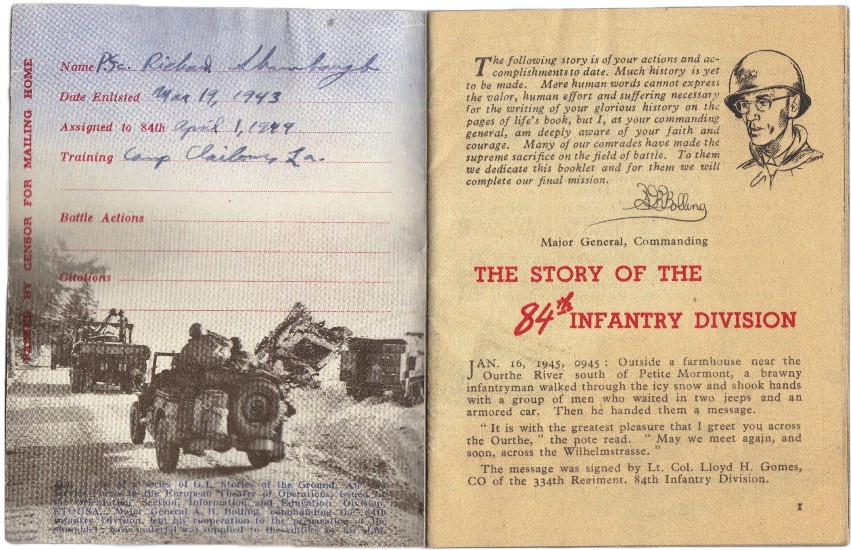 PASSED BY CENSOR FOR MAILING HOME
Name Pfc. Richard
Date Enlisted Mar 19, 1943
Assigned to 84th April 1, 1944
Training Camp Claiborne, La.
Battle Actions
Citations
This is one of a series of G.I. Stories of the Ground, Air and
Service Forces in the European Theater of Operations, issued by
the Orientation Section, Information and Education Division,
ETOUSA... Major General A. R. Bolling, commanding the 84th
Infantry Division, lent his cooperation to the preparation of the
pamphlet; basic material was supplied to the editors by his staff.
The following story is of your actions and ac-
complishments to date. Much history is yet
to be made. Mere human words cannot express
the valor, human effort and suffering necessary
for the writing of your glorious history on the
pages of life's book, but I, as your commanding
general, am deeply aware of your faith and
courage. Many of our comrades have made the
supreme sacrifice on the field of battle. To them
we dedicate this booklet and for them we will
complete our final mission.
A R Bolling
Major General, Commanding
THE STORY OF THE
84th INFANTRY DIVISION
JAN. 16, 1945, 0945 : Outside a farmhouse near the
Ourthe River south of Petite Mormont, a brawny
infantryman walked through the icy snow and shook hands
with a group of men who waited in two jeeps and an
armored car. Then he handed them a message.
" It is with the greatest pleasure that I greet you across
the Ourthe, " the note read. " May we meet again, and
soon, across the Wilhelmstrasse. "
The message was signed by Lt. Col. Lloyd H. Gomes,
CO of the 334th Regiment. 84th Infantry Division.
1